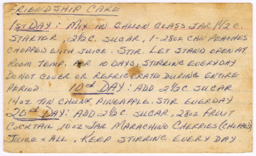 FRIENDSHIP CAKE
1st DAY: MIX IN GALLON GLASS JAR 1 1/2 C.
STARTER 2 1/2 C. SUGAR, 1-28oz CAN PEACHES
CHOPPED WITH JUICE. STIR. LET STAND OPEN AT
ROOM TEMP. FOR 10 DAYS, STIRRING EVERYDAY
DO NOT COVER OR REFRIGERATE DURING ENTIRE
PERIOD 10th DAY: ADD 2 1/2 C SUGAR
14 OZ TIN CHUNK PINEAPPLE. STIR EVERYDAY
20th DAY: ADD 2 1/2 C. SUGAR, 28oz FRUIT
COCKTAIL 10oz JAR MARACHINO CHERRIES (CHOPPED)
JUICE & ALL. KEEP STIRRING EVERY DAY